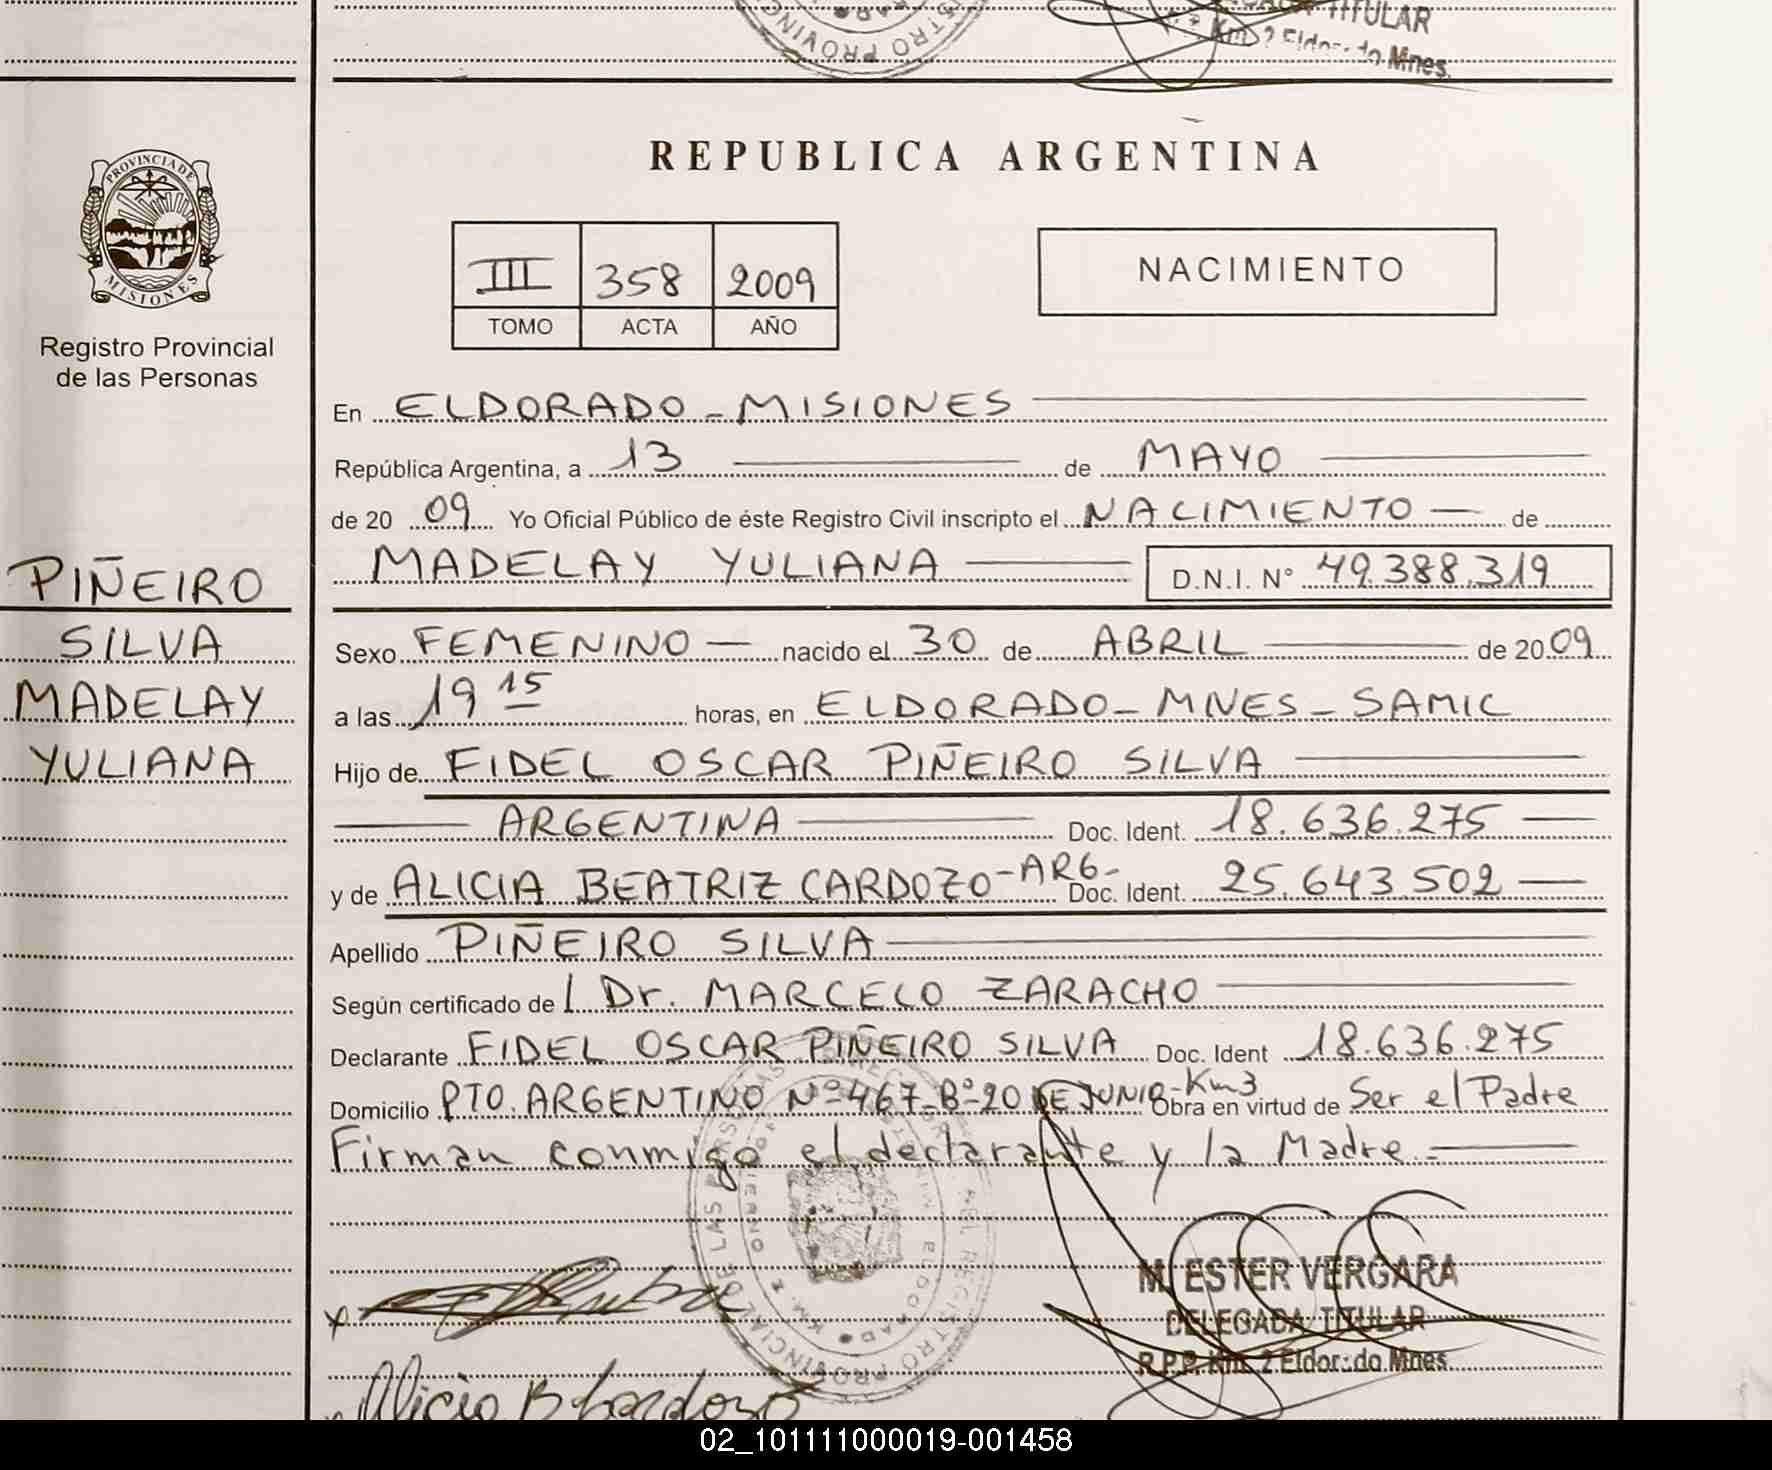 TITULAR
Km. 2 Eldorado Mnes.
PROVINCIA DE
MISIONES
Registro Provincial
de las Personas
PIÑEIRO
SILVA
MADELAY
YULIANA
REPUBLICA ARGENTINA
III 358 2009
TOMO ACTA AÑO
NACIMIENTO
En ELDORADO - MISIONES
República Argentina, a 13 de MAYO
de 20 09 Yo Oficial Público de éste Registro Civil inscripto el NACIMIENTO de
MADELAY YULIANA D.N.I. N° 49.388.319
Sexo FEMENINO nacido el 30 de ABRIL de 20 09
a las 19 15 horas, en ELDORADO - MNES - SAMIC
Hijo de FIDEL OSCAR PIÑEIRO SILVA
ARGENTINA Doc. Ident. 18.636.275
y de ALICIA BEATRIZ CARDOZO - ARG - Doc. Ident. 25.643.502
Apellido PIÑEIRO SILVA
Según certificado de Dr. MARCELO ZARACHO
Declarante FIDEL OSCAR PIÑEIRO SILVA Doc. Ident 18.636.275
Domicilio PTO. ARGENTINO Nº 467 - Bº 20 DE JUNIO - Km3 Obra en virtud de Ser el Padre
Firman conmigo el declarante y la Madre.
M. ESTER VERGARA
DELEGADA TITULAR
R.P.P. Km. 2 Eldorado Mnes.
Alicia B Cardozo
02_101111000019-001458